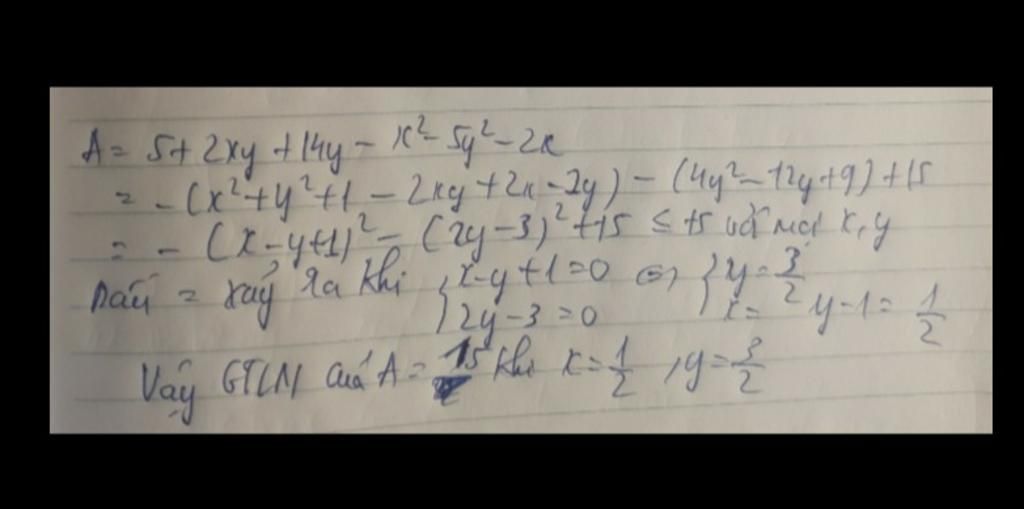 A = 5 + 2xy + 14y - x² - 5y² - 2x
= - (x² + y² + 1 - 2xy + 2x - 2y) - (4y² - 12y + 9) + 15
= - (x - y + 1)² - (2y - 3)² + 15 ≤ 15 với mọi x, y
Dấu = xảy ra khi { x - y + 1 = 0 ⇔ { y = 3/2
2y - 3 = 0 x = y - 1 = 1/2
Vậy GTLN của A = 15 khi x = 1/2, y = 3/2